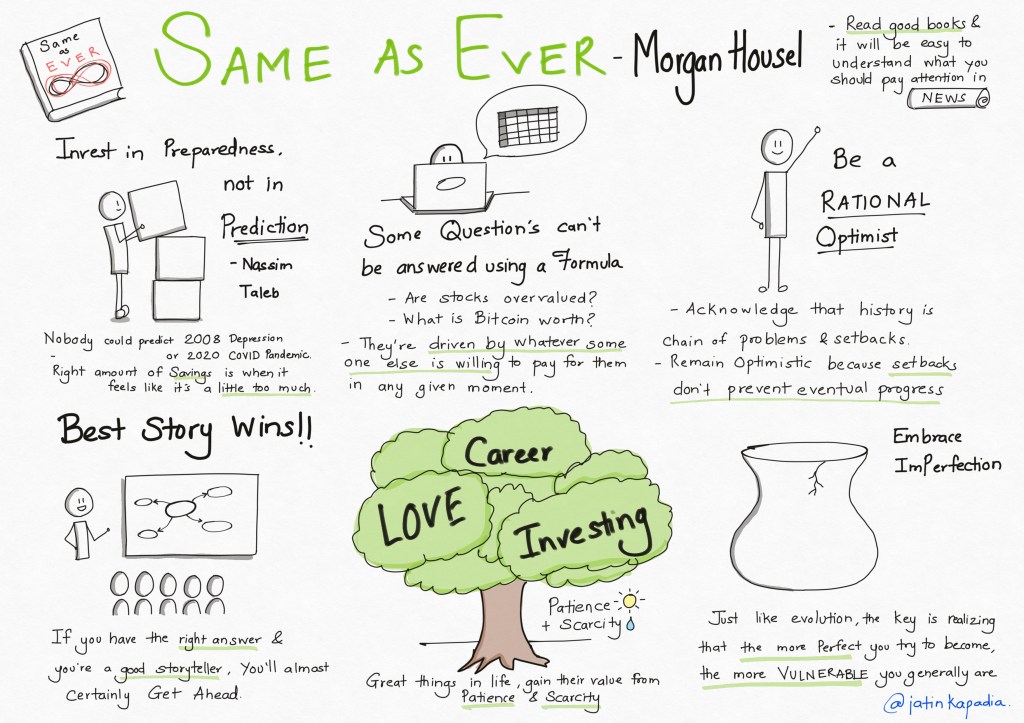 Same
as
EVER
SAME AS EVER - Morgan Housel
- Read good books &
it will be easy to
understand what you
should pay attention in
NEWS
Invest in Preparedness,
not in
Prediction
- Nassim
Taleb
Nobody could predict 2008 Depression
- or 2020 COVID Pandemic.
Right amount of Savings is when it
feels like it's a little too much.
Some Question's can't
be answered using a Formula
- Are stocks overvalued?
- What is Bitcoin worth?
- They're driven by whatever some
one else is willing to pay for them
in any given moment.
Be a
RATIONAL
Optimist
- Acknowledge that history is
chain of problems & setbacks.
- Remain Optimistic because setbacks
don't prevent eventual progress
Best Story Wins!!
If you have the right answer &
you're a good storyteller, You'll almost
Certainly Get Ahead.
Career
LOVE
Investing
Patience
+ Scarcity
Great things in life, gain their value from
Patience & Scarcity
Embrace
ImPerfection
Just like evolution, the key is realizing
that the more Perfect you try to become,
the more VULNERABLE you generally are
@jatinkapadia.